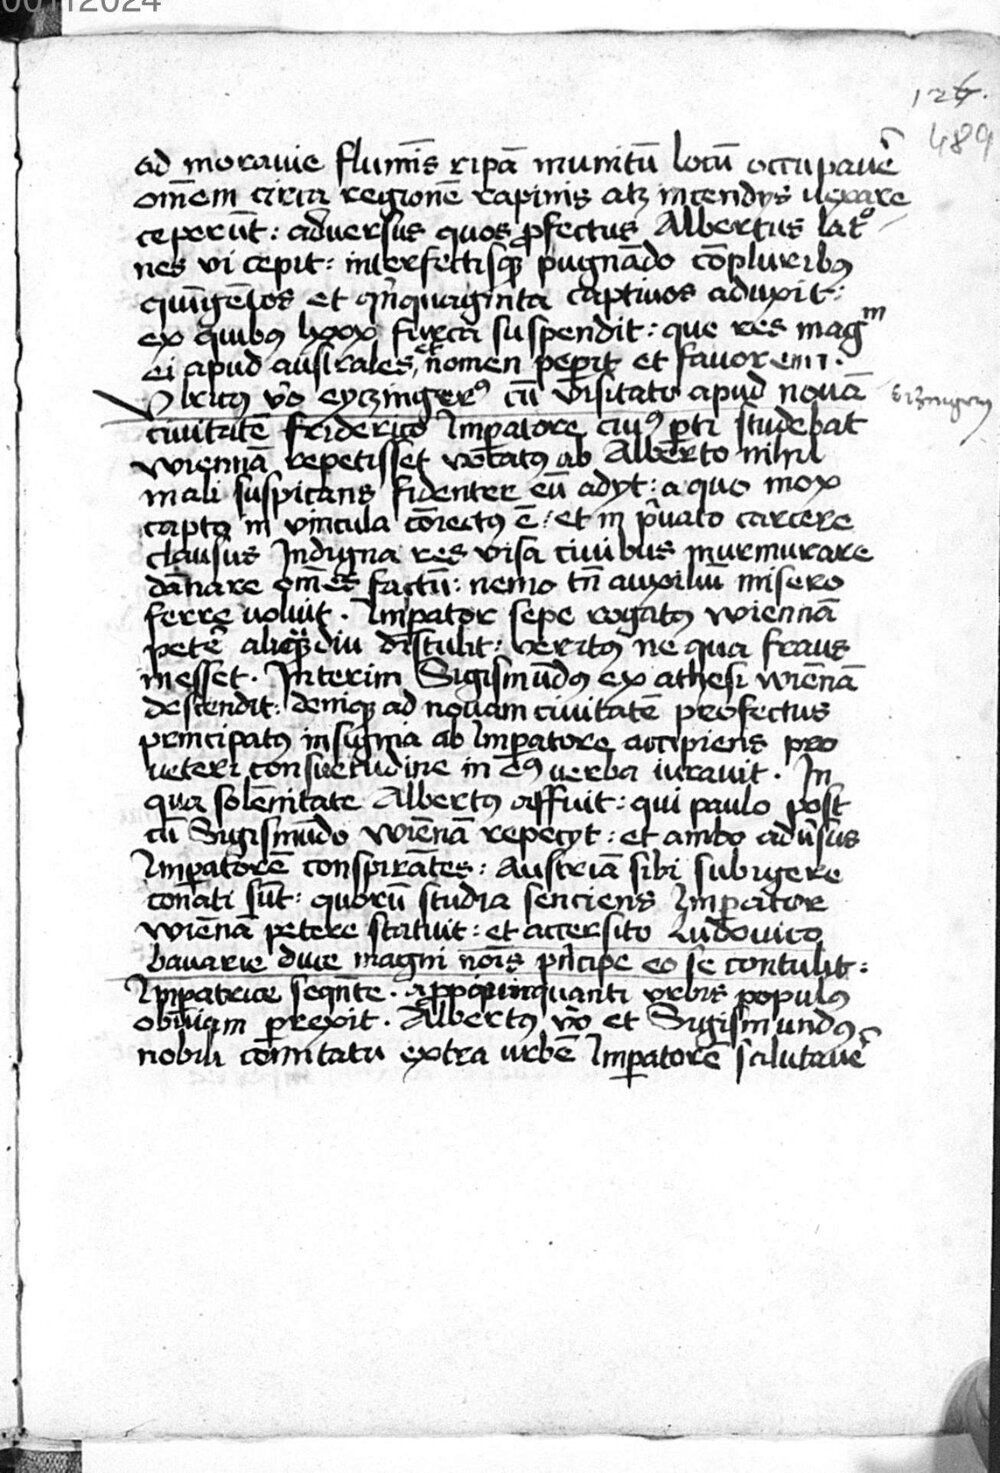 00112024
126.
489
ad moravie flumīs ripā munitū locū occupavē̄
om̄em circa regionē rapinis atꝫ incendijs vexare
ceperūt : adversus quos ꝓfectus Albertus lat͛o
nes vi cepit : interfectisqꝫ pugnādo cōpluribꝰ
quīgētos et q̄nquaginta captivos aduxit :
ex quibꝰ lxxx furca suspendit : que res magᵐ
ei apud australes et nomen peꝑit et favorem .
Ulricꝰ v̄o eyczingerꝰ cū visitato apud novā
civitatē friderico Imꝑatore ciuꝰ ꝑti studebat
wiennā repetisset vocatꝰ ab Alberto nihil
mali suspicans fidenter eū adyt : a quo mox
captꝰ in vincula cōiectꝰ ē : et in p̄vato carcere
clausus Indigna res visa civibus murmurare
dānare om̄es factū : nemo tn̄ auxiliū misero
ferre voluit . Imꝑator sepe rogatꝰ wiennā
petē̄ aliqꝫdiu distulit : veritꝰ ne qua fraus
inesset . Interim Sigismūdꝰ ex athesi wiēnā
descendit : deniqꝫ ad novam civitatē profectus
principatꝰ insignia ab Imꝑatore accipiens pro
veteri consuetudine in eꝰ verba iuravit . In
qua solēnitate Albertꝰ affuit : qui paulo post
cū Sigismūdo wiēnā repecyt : et ambo advsus
Imꝑatorē conspirātes : Austriā sibi subigere
conati sūt : quorū studia senciens Imꝑator
wiēnā petere statuit : et accersito Ludovico
bavarie duce magni noīs pncipe eo se contulit :
Imꝑatrice seqn̄te . appropinquanti urbis populꝰ
obviam ꝑrexit . Albertꝰ v̄o et Sigismundꝰ
nobili comitatu extra urbē Imꝑatorē salutavē̄